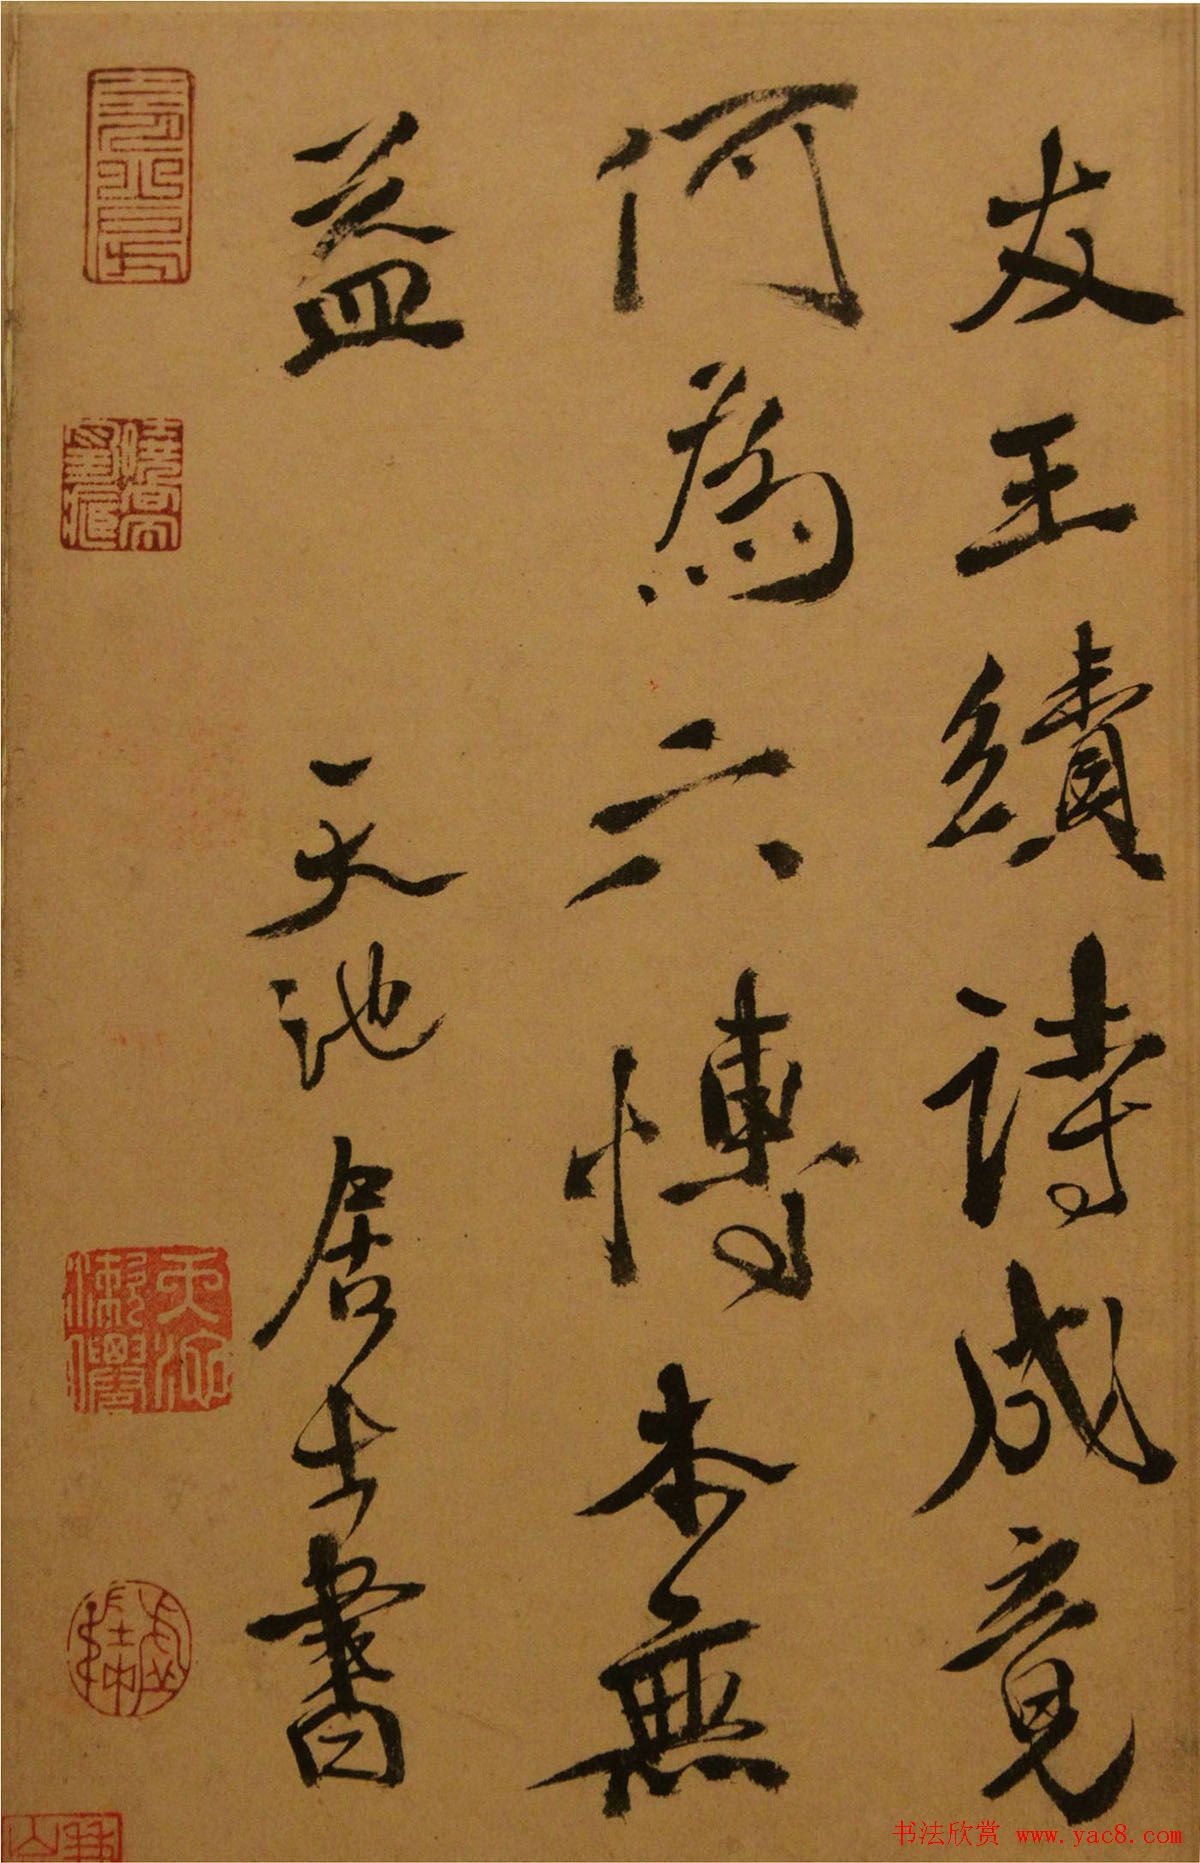 友王續詩成竟
何為六博本無
益
天池居士書
书法欣赏 www.yac8.com